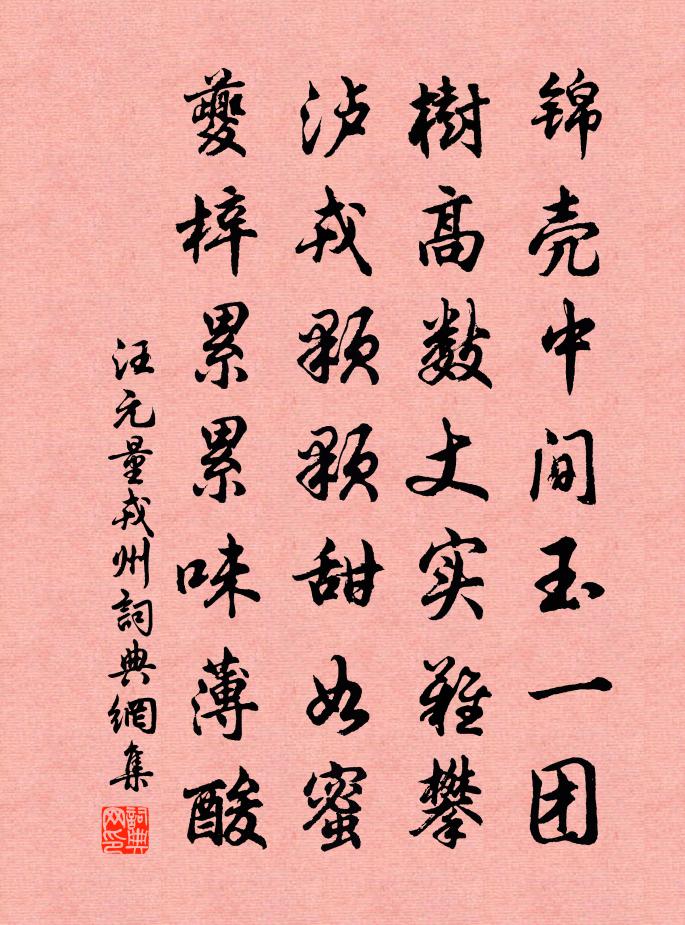 锦壳中间玉一团
樹高数丈实难攀
泸戎顆顆甜如蜜
夔梓累累味薄酸
汪元量戎州詞典網集
詞典网印